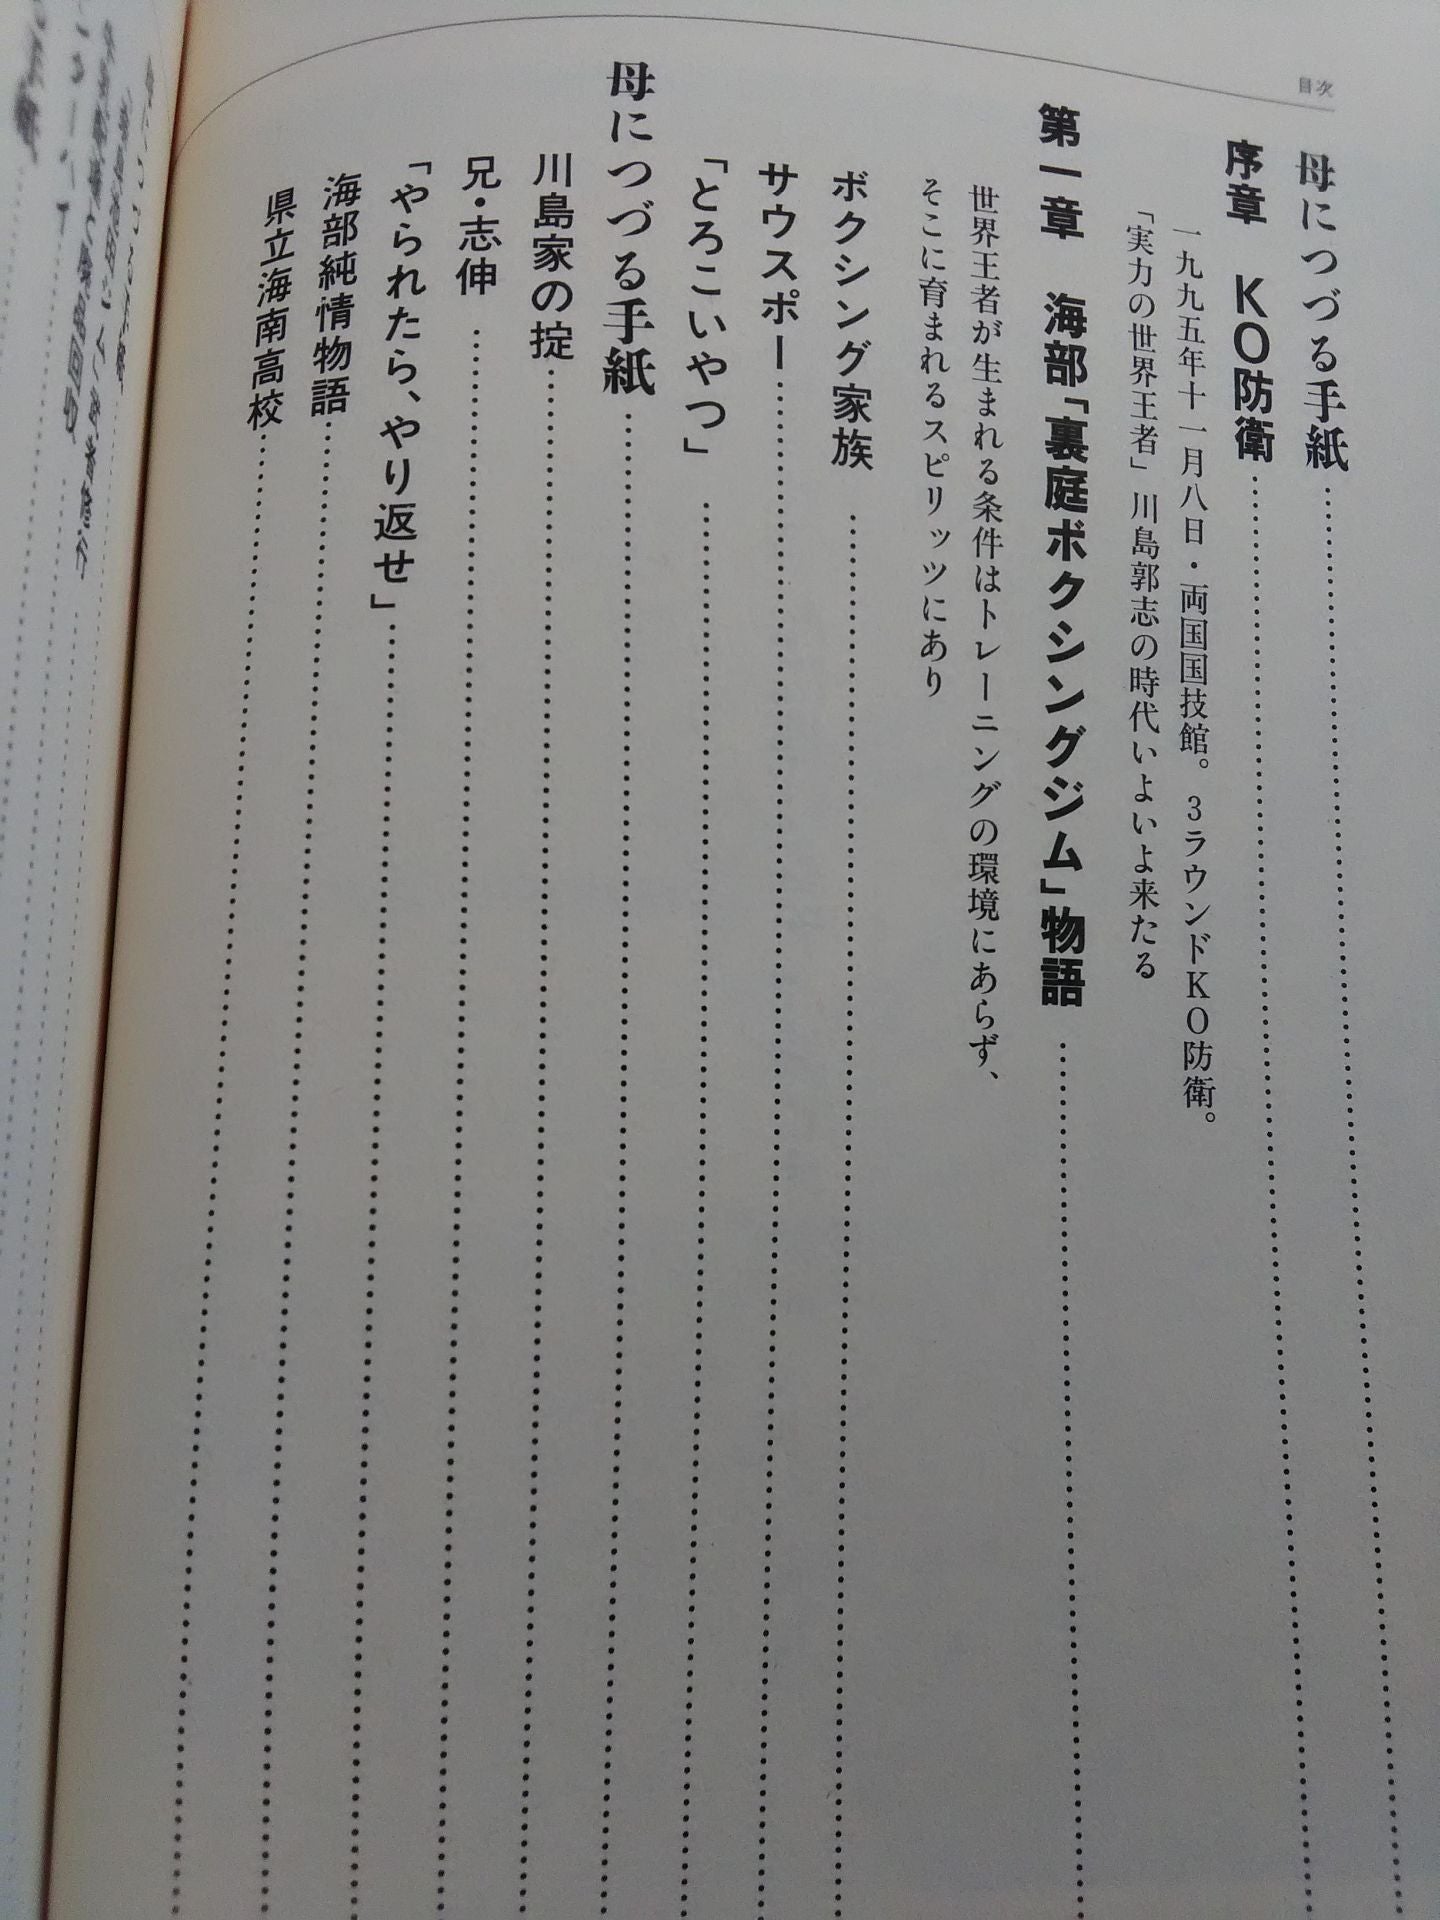 目次
母につづる手紙
序章　KO防衛
一九九五年十一月八日・両国国技館。3ラウンドKO防衛。
「実力の世界王者」川島郭志の時代いよいよ来たる
第一章　海部「裏庭ボクシングジム」物語
世界王者が生まれる条件はトレーニングの環境にあらず、
そこに育まれるスピリッツにあり
ボクシング家族
サウスポー
「とろこいやつ」
母につづる手紙
川島家の掟
兄・志伸
「やられたら、やり返せ」
海部純情物語
県立海南高校